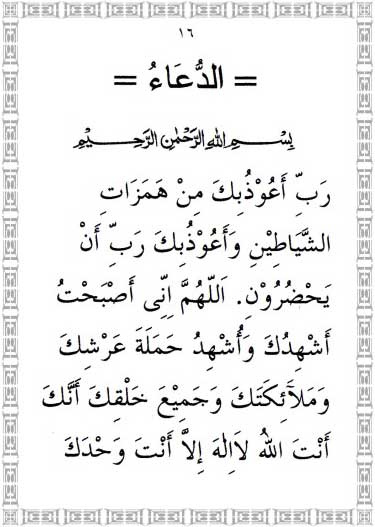 ١٦
= الدُّعَاءُ =
بِسْمِ اللهِ الرَّحْمٰنِ الرَّحِيْمِ
رَبِّ أَعُوْذُبِكَ مِنْ هَمَزَاتِ
الشَّيَاطِيْنِ وَأَعُوْذُبِكَ رَبِّ أَنْ
يَحْضُرُوْنِ. اَللّٰهُمَّ اِنِّى أَصْبَحْتُ
أَشْهِدُكَ وَأُشْهِدُ حَمَلَةَ عَرْشِكَ
وَمَلَآئِكَتَكَ وَجَمِيْعَ خَلْقِكَ أَنَّكَ
أَنْتَ اللهُ لَااِلٰهَ اِلاَّ أَنْتَ وَحْدَكَ